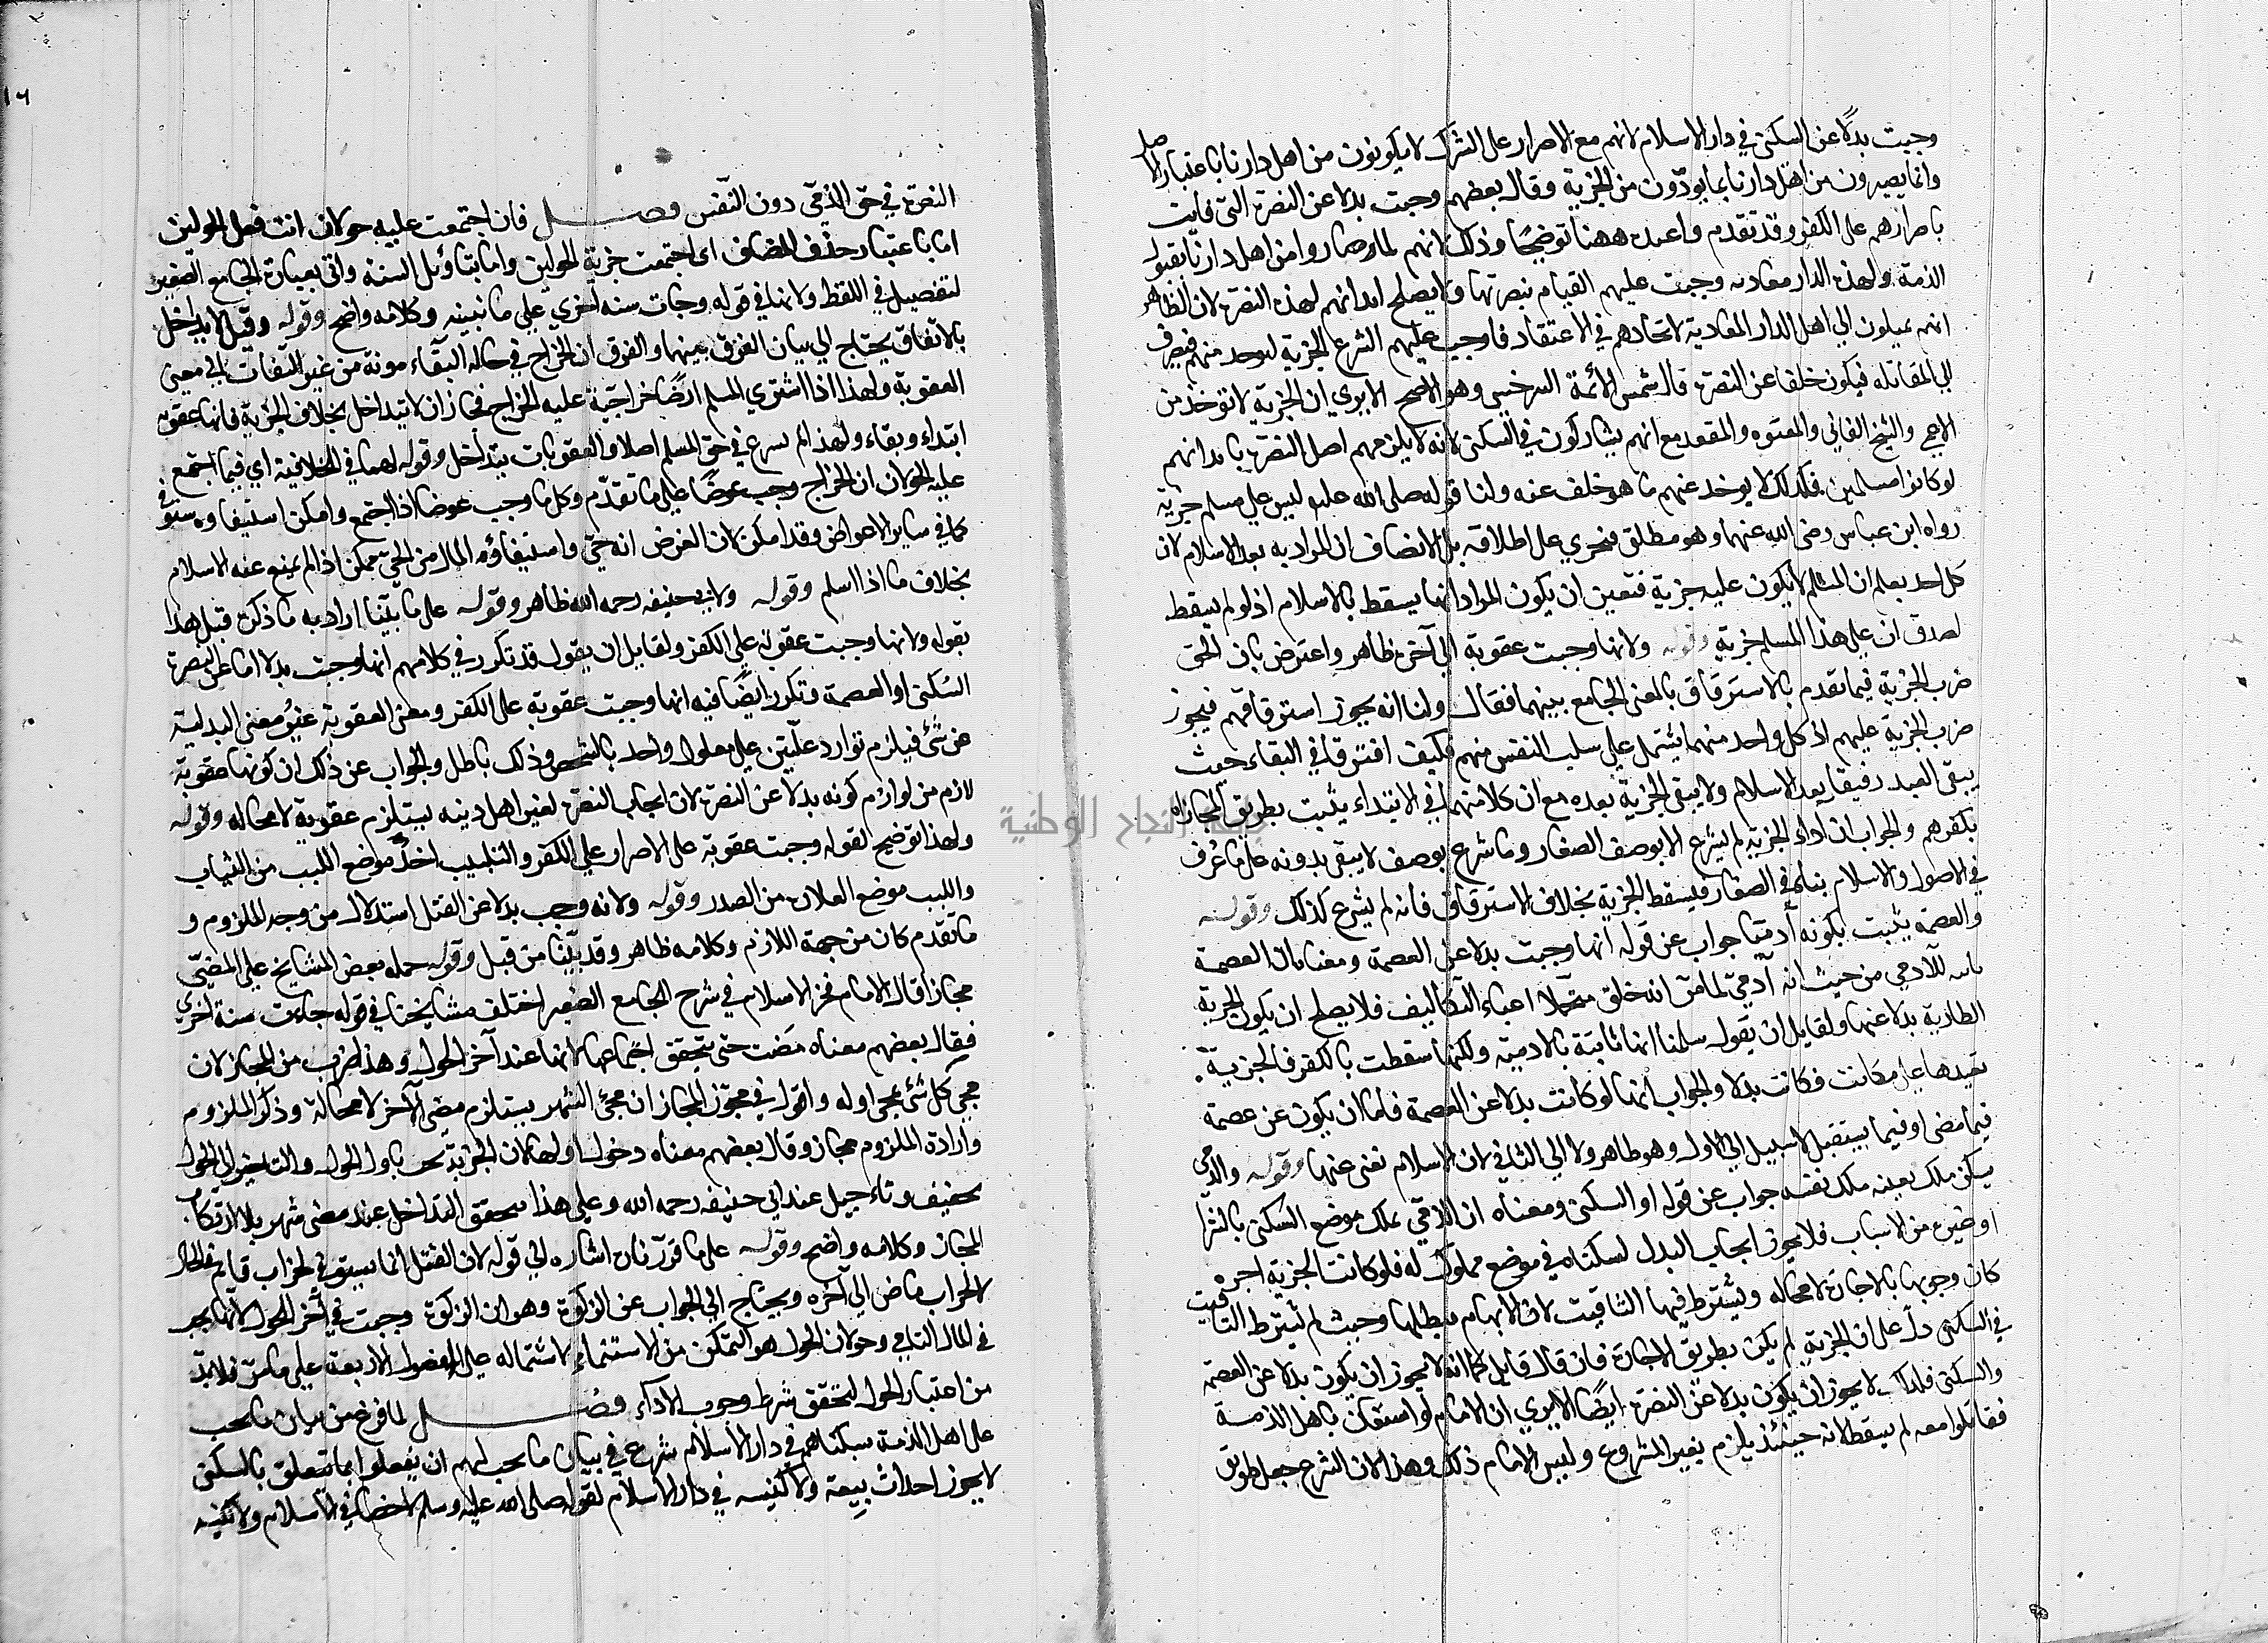 وجبت بدلا عن السكنى في دار الاسلام لانهم مع الاصرار على الشرك لا يكونون من اهل دارنا باعتبار الاصل
وانما يصيرون من اهل دارنا بما يودون من الجزية وقال بعضهم وجبت بدلا عن النصرة التي فاتت
باصرارهم على الكفر وقد تقدم واعيده ههنا توضيحا وذلك لانهم لما صاروا من اهل دارنا بقبول
الذمة ولهذه الدار معاديه وجبت عليهم القيام بنصرتها ولا يصلح ابدانهم لهذه النصرة لان الظاهر
انهم يميلون الي اهل الدار المعادية لاتحادهم في الاعتقاد فاوجب عليهم الشرع الجزية ليوخد منهم فيصرف
الي المقاتله فيكون خلفا عن النصرة قال شمس الائمة السرخسي وهو الاصح الا يري ان الجزية لا توخذ من
الاعمي والشيخ الفاني والمعتوه والمقعد مع انهم يشاركون في السكنى لانه لا يلزمهم اصل النصرة بابدانهم
لو كانوا مسلمين فكذلك لا يوخد عنهم ما هو خلف عنه ولنا قوله صلى الله عليه ليس علي مسلم جزية
رواه ابن عباس رضى الله عنهما وهو مطلق فنجري على اطلاقه بل الانصاف ان المراد به بعد الاسلام لان
كل احد يعلم ان المسلم لا يكون عليه جزية فتعين ان يكون المراد انها يسقط بالاسلام اذ لو لم يسقط
لصدق ان علي هذا المسلم جزية وقوله ولانها وجبت عقوبة الي آخره ظاهر واعترض بان الحق
ضرب الجزية فيما تقدم بالاسترقاق بالمعنى الجامع بينهما فقال ولنا انه يجوز استرقاقهم فيجوز
ضرب الجزية عليهم اذ كل واحد منهما يشتمل علي سلب النفس منهم فكيف افترقا في البقاء حيث
يبقى العبد رقيقا بعد الاسلام ولا يبقى الجزية بعده مع ان كلا منهما في الابتداء يثبت بطريق المجازاه
بكفرهم والجواب ان اداء الجزية لم يشرع الا بوصف الصغار وما شرع بوصف لا يبقى بدونه على ما عرف
في الاصول والاسلام ينافي الصغار فيسقط الجزية بخلاف الاسترقاق فانه لم يشرع كذلك وقوله
والعصمة يثبت بكونه آدميا جواب عن قوله انها وجبت بدلا عن العصمة ومعناه ان العصمة
ثابته للآدمي من حيث انه آدمي لما مر انه خلق متحملا اعباء التكاليف فلا يصلح ان يكون الجزية
الطارية بدلا عنها ولقايل ان يقول سلمنا انها ثابتة بالادمية ولكنها سقطت بالكفر فالجزية
تعيدها على ما كانت فكانت بدلا والجواب انها لو كانت بدلا عن العصمة فاما ان يكون عن عصمة
فيما مضى او فيما يستقبل لا سبيل الي الاول وهو ظاهر ولا الي الثاني لان الاسلام يغنى عنها وقوله والذمي
يسكن ملك نفسه جواب عن قوله او السكنى ومعناه ان الذمي يملك موضع السكنى بالشرا
او غيره من الاسباب فلا يجوز ايجاب البدل لسكناه في موضع مملوك له فلو كانت الجزية اجره
كان وجوبها بالاجارة لا محاله ويشترط فيها التاقيت لان الابهام يبطلها وحيث لم يشترط التاقيت
في السكنى دل على ان الجزية لم يكن بطريق الاجارة فان قال قايل كما انه لا يجوز ان يكون بدلا عن العصمة
والسكنى فلذلك لا يجوز ان يكون بدلا عن النصرة ايضا الا يري ان الامام لو استعان باهل الذمة
فقاتلوا معه لم يسقط لانه حينئذ يلزم تغير المشروع وليس للامام ذلك وهذا لان الشرع جعل طريق
النصرة في حق الذمي دون النفس فصل فان اجتمعت عليه حولان انث فعل الحولين
اما باعتبار حذف المضاف اى اجتمعت جزية الحولين واما بتاويل السنه واتى بعبارة الجامع الصغير
لتفصيل في اللفظ ولانها في قوله وجات سنه اخري علي ما نبينه وكلامه واضح وقوله وقيل لا يداخل
بالاتفاق يحتاج الي بيان الفرق بينهما والفرق ان الخراج في حالة البقاء مونة من غير التفات الي معنى
العقوبة ولهذا اذا اشتري المسلم ارضا خراجية عليه الخراج فجاز ان لا يتداخل بخلاف الجزية فانها عقوبه
ابتداء وبقاء ولهذا لم يسرع في حق المسلم اصلا والعقوبات يتداخل وقوله لهما في الخلافية اي فيما اجتمع
عليه الحولان ان الخراج وجب عوضا علي ما تقدم وكل ما وجب عوضا اذا اجتمع وامكن استيفاوه يستوفى
كما في ساير الاعواض وقد امكن لان الفرض انه حي واستيفاؤه المال من الحي ممكن اذا لم يمنع عنه الاسلام
بخلاف ما اذا اسلم وقوله ولابي حنيفه رحمه الله ظاهر وقوله على ما بينا اراد به ما ذكره قبل هذا
بقوله ولانها وجبت عقوبة علي الكفر ولقايل ان يقول قد تكرر في كلامهم انها وجبت بدلا اما عن النصرة
السكنى او العصمة وتكرر ايضا فيه انها وجبت عقوبة على الكفر ومعنى العقوبة غير معنى البدلية
عن شئ فيلزم توارد علتين علي معلول واحد بالشخص وذلك باطل والجواب عن ذلك ان كونها عقوبة
لازم من لوازم كونه بدلا عن النصرة لان ايجاب النصرة لغير اهل دينه يستلزم عقوبة لا محاله وقوله
ولهذا توضيح لقوله وجبت عقوبة على الاصرار علي الكفر والتلبيب اخذ موضع اللبب من الثياب
واللبب موضع القلادة من الصدر وقوله ولانه وجب بدلا عن القتل استدلال من وجه الملزوم و
ما تقدم كان من جهة اللازم وكلامه ظاهر وقد بينا من قبل وقوله حمله بعض المشايخ علي المضي
مجازا قال الامام فخر الاسلام في شرح الجامع الصغير اختلف مشايخنا في قوله جاءت سنة اخري
فقال بعضهم معناه مضت حتى يتحقق اجتماعها لانها عند آخر الحول وهذا ضرب من المجاز لان
مجى كل شئ بمجى اوله واقول في مجوز المجاز ان مجئ الشهر يستلزم مضى الآخر لا محالة وذكر الملزوم
وارادة الملزوم مجاز وقال بعضهم معناه دخول اولها لان الجزية تجب باول الحول والتاخير الي الحول
تخفيف وتاءجيل عند ابي حنيفه رحمه الله وعلي هذا يتحقق التداخل عند مضى شهر بلا ارتكاب
المجاز وكلامه واضح وقوله على ما قررناه اشاره الي قوله لان القتل انما يستوفى لحراب قايم في الحال
لا لحراب ماض الي آخره ويحتاج الي الجواب عن الزكوة وهو ان الزكوة وجبت في آخر الحول لانها تجب
في المال النامي وحولان الحول هو التمكن من الاستنماء لاشتماله على الفصول الاربعة علي ما مر فلا بد
من اعتبار الحول ليتحقق شرط وجوب الاداء فصل لما فرغ من بيان ما يجب
على اهل الذمة بسكناهم في دار الاسلام شرع في بيان ما يجب لهم ان يفعلوا بما يتعلق بالسكنى
لا يجوز احداث بيعة ولا كنيسه في دار الاسلام لقوله صلى الله عليه وسلم لا خصا في الاسلام ولا كنيسه
١٦
جامعة النجاح الوطنية